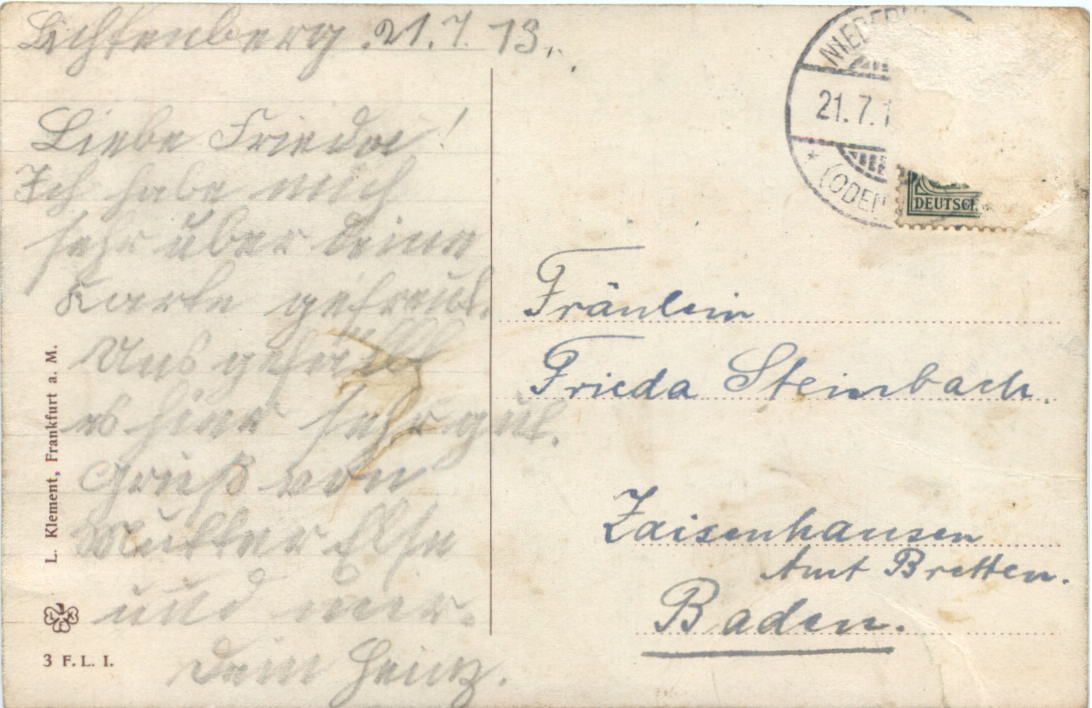 Lichtenberg 21.7.13.
Liebe Frieda!
Ich habe mich
sehr über Deine
Karte gefreut.
Uns gefällt
es hier sehr gut.
Gruß von
Mutter Else
und mir.
Dein Heinz.
L. Klement, Frankfurt a. M.
3 F. L. I.
21.7.1
(ODEN
DEUTSCH
Fräulein
Frieda Steinbach.
Zaisenhausen
Amt Bretten.
Baden.